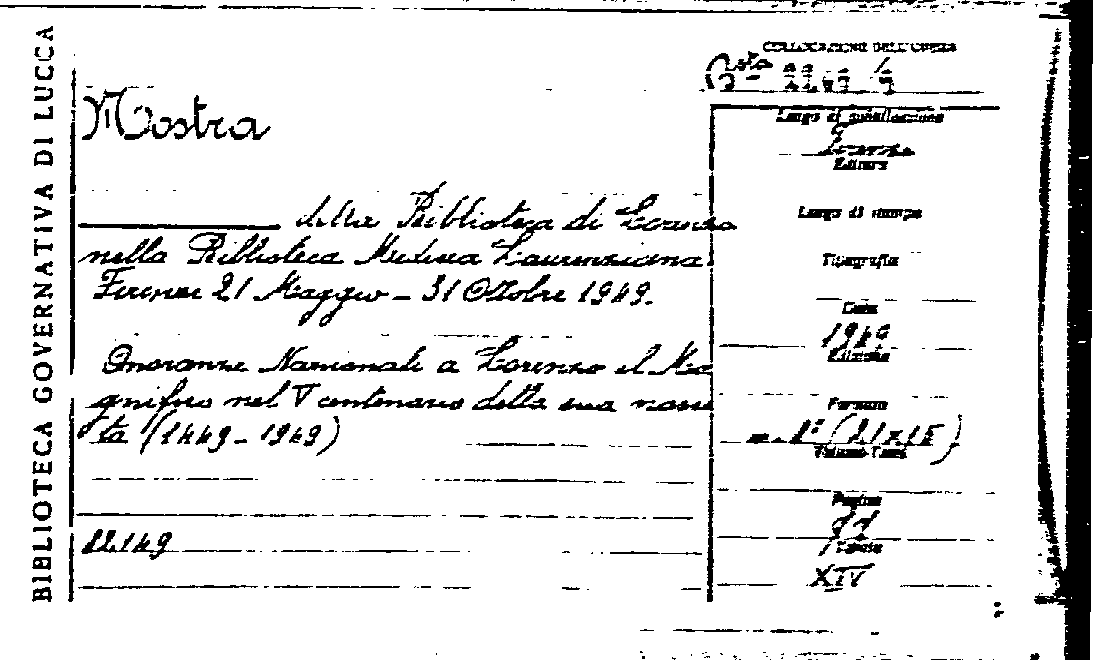 BIBLIOTECA GOVERNATIVA DI LUCCA
COLLOCAZIONE DELL'OPERA
Bsta
Mostra
della Biblioteca di Lorenzo
nella Biblioteca Medicea Laurenziana
Firenze 21 Maggio - 31 Ottobre 1949.
Onoranze Nazionali a Lorenzo il Ma
gnifico nel V centenario della sua nasci
ta (1449-1949)
22.149
Luogo di pubblicazione
Firenze
Editore
Luogo di stampa
Tipografia
Data
1949
Edizione
Formato
(21x15)
Volumi-Tomi
Pagine
Tavole
XIV